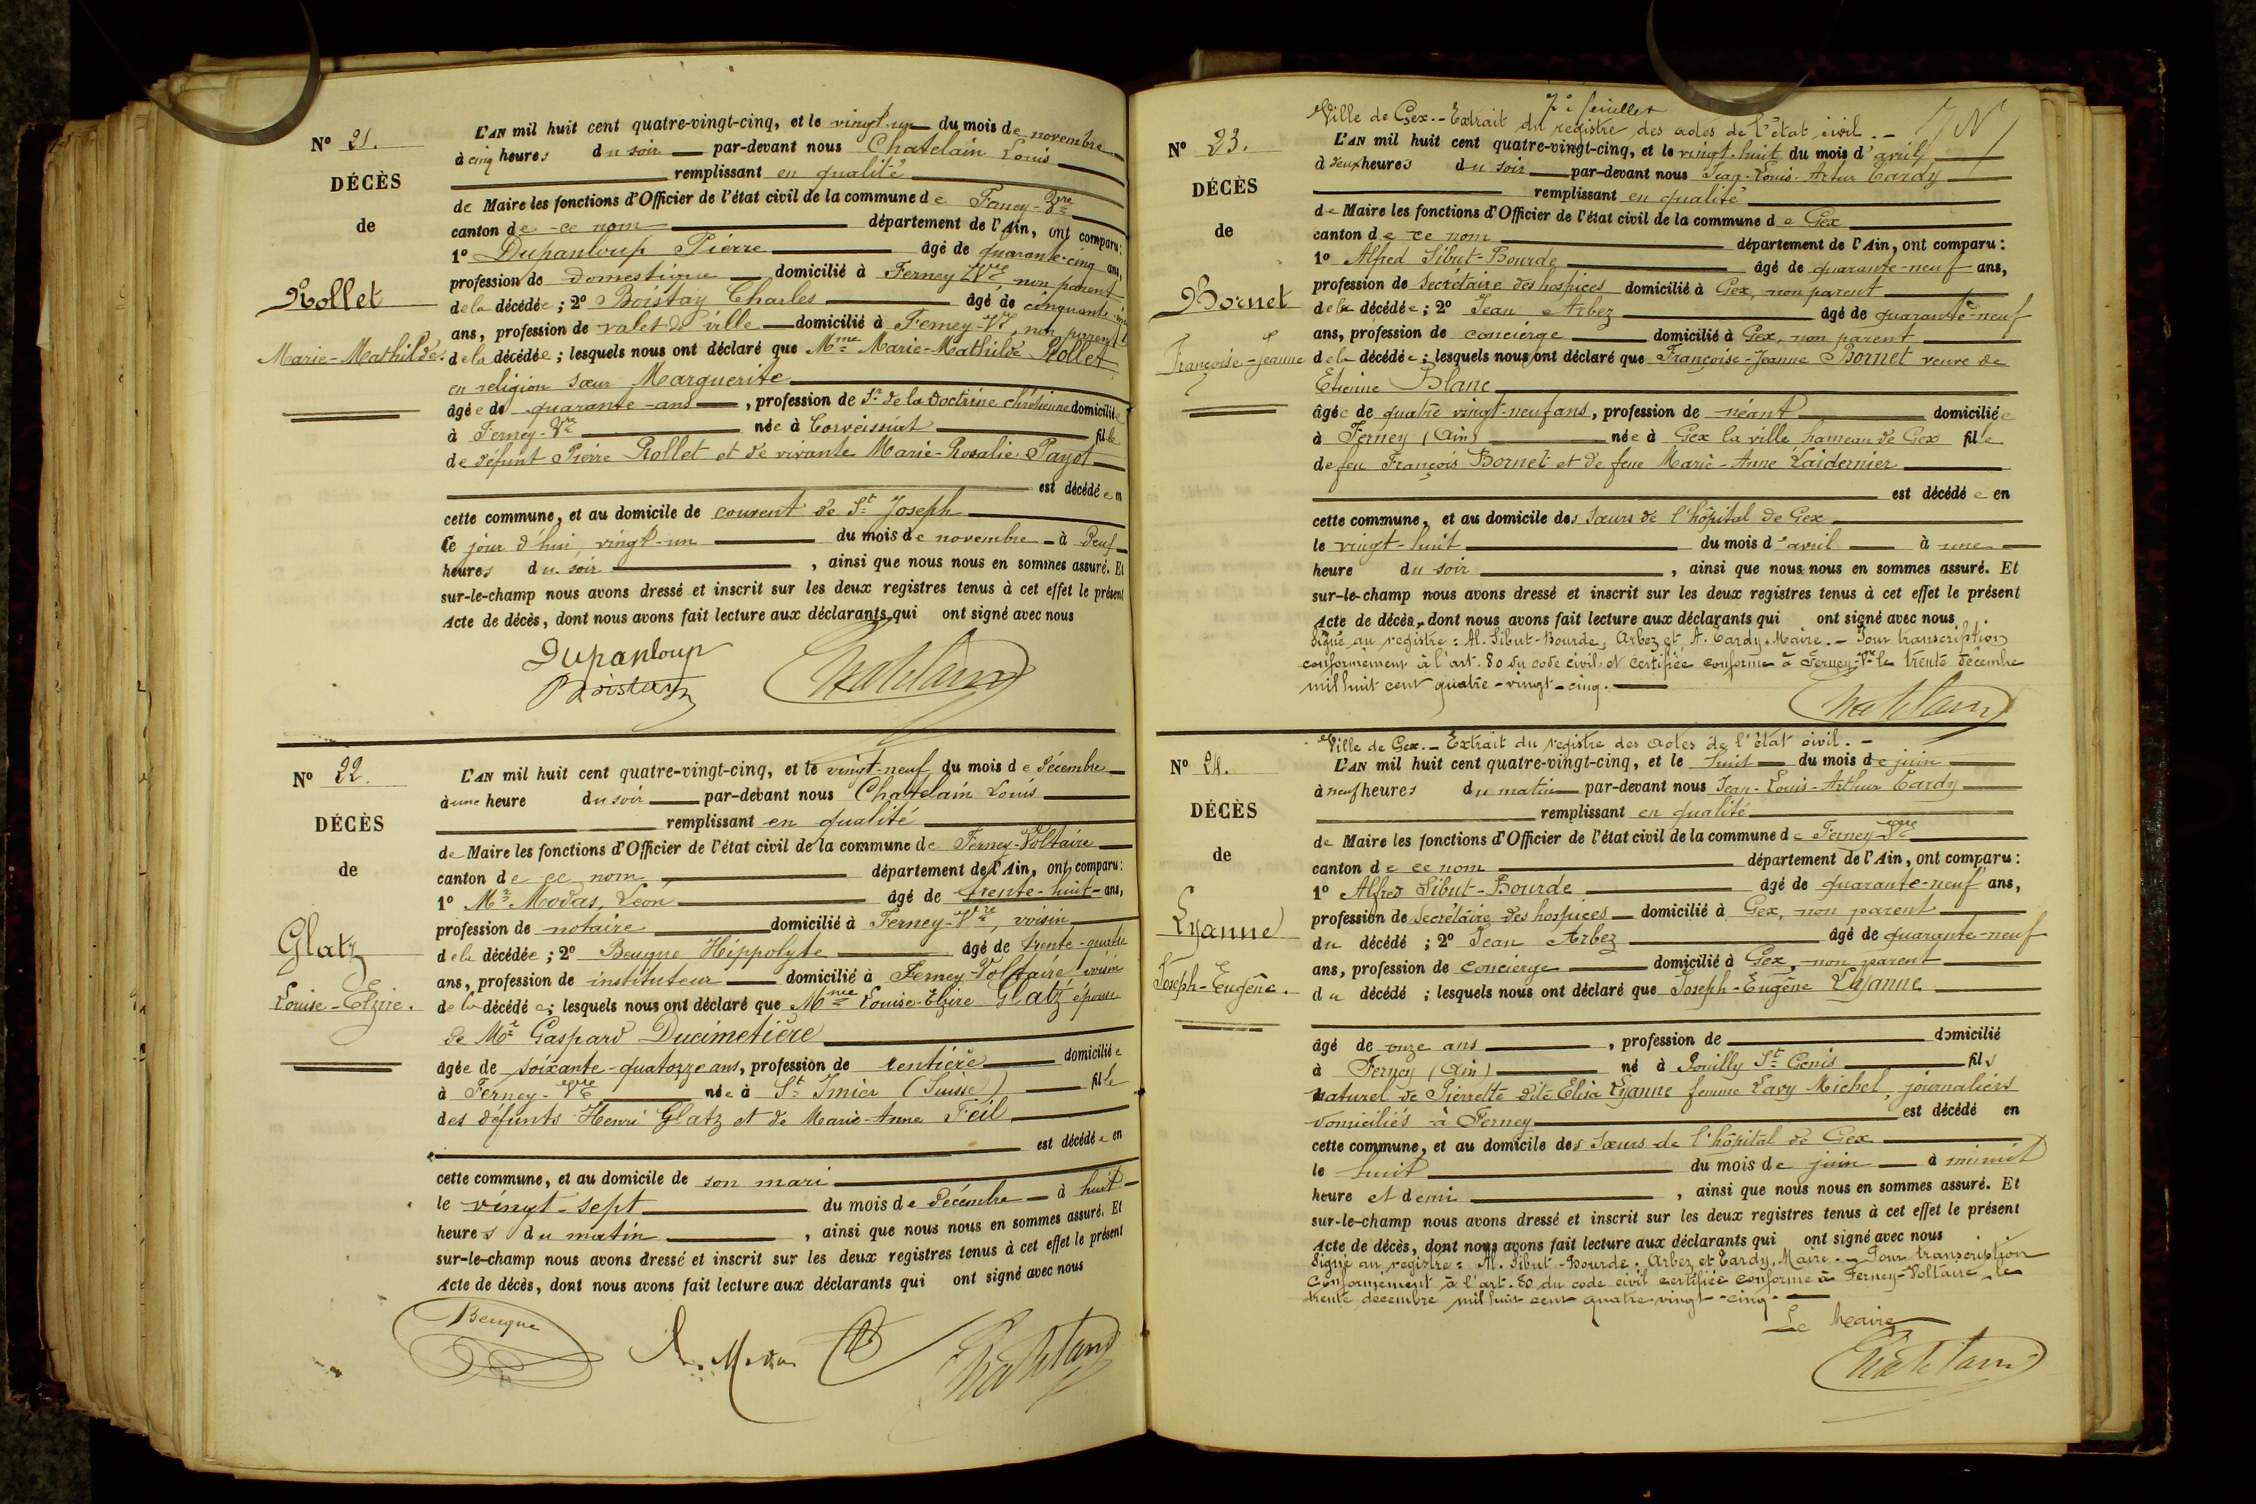 N° 21.
DÉCÈS
de
Rollet
Marie-Mathilde.
L'AN mil huit cent quatre-vingt-cinq, et le vingt-un du mois de novembre
à cinq heures du soir par-devant nous Chatelain Louis
remplissant en qualité
de Maire les fonctions d'Officier de l'état civil de la commune de Ferney-Vre
canton de ce nom département de l'Ain, ont comparu:
1° Dupanloup Pierre âgé de quarante-cinq ans,
profession de domestique domicilié à Ferney Vre non parent
de la décédée; 2° Boistay Charles âgé de cinquante
ans, profession de valet de ville domicilié à Ferney-Vre, non parent
de la décédée; lesquels nous ont déclaré que Mme Marie-Mathilde Rollet
en religion sœur Marguerite
âgée de quarante-ans, profession de Sr de la Doctrine chrétienne domiciliée
à Ferney-Vre née à Corveissiat fille
de défunt Pierre Rollet et de vivante Marie-Rosalie Payot
est décédée en
cette commune, et au domicile de couvent de St Joseph
Ce jour d'hui, vingt-un du mois de novembre à deux
heures du soir, ainsi que nous nous en sommes assuré. Et
sur-le-champ nous avons dressé et inscrit sur les deux registres tenus à cet effet le présent
Acte de décès, dont nous avons fait lecture aux déclarants qui ont signé avec nous
Dupanloup
Boistay
Chatelain
N° 22.
DÉCÈS
de
Glatz
Louise-Elzire.
L'AN mil huit cent quatre-vingt-cinq, et le vingt-neuf du mois de décembre
à une heure du soir par-devant nous Chatelain Louis
remplissant en qualité
de Maire les fonctions d'Officier de l'état civil de la commune de Ferney-Voltaire
canton de ce nom département de l'Ain, ont comparu:
1° Mr Modas, Léon âgé de trente-huit ans,
profession de notaire domicilié à Ferney-Vre, voisin
de la décédée; 2° Beugue Hippolyte âgé de trente-quatre
ans, profession de instituteur domicilié à Ferney-Voltaire voisin
de la décédée; lesquels nous ont déclaré que Mme Louise-Elzire Glatz épouse
de Mr Gaspard Ducimetière
âgée de soixante-quatorze ans, profession de rentière domiciliée
à Ferney-Vre née à St Imier (Suisse) fille
des défunts Henri Glatz et de Marie-Anne Feil
est décédée en
cette commune, et au domicile de son mari
le vingt-sept du mois de décembre à huit
heures du matin, ainsi que nous nous en sommes assuré. Et
sur-le-champ nous avons dressé et inscrit sur les deux registres tenus à cet effet le présent
Acte de décès, dont nous avons fait lecture aux déclarants qui ont signé avec nous
Beugue
L. Modas
Chatelain
7e feuillet
N° 23.
DÉCÈS
de
Bornet
Françoise-Jeanne
Ville de Gex.- Extrait du registre des actes de l'état civil.-
L'AN mil huit cent quatre-vingt-cinq, et le vingt-huit du mois d'avril
à deux heures du soir par-devant nous Jean-Louis-Artur Tardy
remplissant en qualité
de Maire les fonctions d'Officier de l'état civil de la commune de Gex
canton de ce nom département de l'Ain, ont comparu:
1° Alfred Sibut-Bourde âgé de quarante-neuf ans,
profession de Secrétaire des hospices domicilié à Gex, non parent
de la décédée; 2° Jean Arbez âgé de quarante-neuf
ans, profession de concierge domicilié à Gex, non parent
de la décédée; lesquels nous ont déclaré que Françoise-Jeanne Bornet veuve de
Etienne Blanc
âgée de quatre vingt-neuf ans, profession de néant domiciliée
à Ferney (Ain) née à Gex la ville hameau de Gex fille
de feu François Bornet et de feue Marie-Anne Laidernier
est décédée en
cette commune, et au domicile des sœurs de l'hôpital de Gex
le vingt-huit du mois d'avril à une
heure du soir, ainsi que nous nous en sommes assuré. Et
sur-le-champ nous avons dressé et inscrit sur les deux registres tenus à cet effet le présent
Acte de décès, dont nous avons fait lecture aux déclarants qui ont signé avec nous
Signé au registre: Al. Sibut-Bourde, Arbez et A. Tardy, Maire.- Pour transcription
conformément à l'art. 80 du code civil et certifiée conforme à Ferney-Vre le trente décembre
mil huit cent quatre-vingt-cinq.
Chatelain
N° 24.
DÉCÈS
de
Lyanne
Joseph-Eugène.
Ville de Gex.- Extrait du registre des actes de l'état civil.-
L'AN mil huit cent quatre-vingt-cinq, et le huit du mois de juin
à neuf heures du matin par-devant nous Jean-Louis-Arthur Tardy
remplissant en qualité
de Maire les fonctions d'Officier de l'état civil de la commune de Ferney-Vre
canton de ce nom département de l'Ain, ont comparu:
1° Alfred Sibut-Bourde âgé de quarante-neuf ans,
profession de Secrétaire des hospices domicilié à Gex, non parent
du décédé; 2° Jean Arbez âgé de quarante-neuf
ans, profession de concierge domicilié à Gex, non parent
du décédé; lesquels nous ont déclaré que Joseph-Eugène Lyanne
âgé de onze ans, profession de domicilié
à Ferney (Ain) né à Pouilly St Genis fils
naturel de Pierrette dite Elisa Lyanne femme Lavy Michel, journaliers
domiciliés à Ferney est décédé en
cette commune, et au domicile des sœurs de l'hôpital de Gex
le huit du mois de juin à minuit
heure et demi, ainsi que nous nous en sommes assuré. Et
sur-le-champ nous avons dressé et inscrit sur les deux registres tenus à cet effet le présent
Acte de décès, dont nous avons fait lecture aux déclarants qui ont signé avec nous
Signé au registre: Al. Sibut-Bourde. Arbez et Tardy, Maire.- Pour transcription
conformément à l'art. 80 du code civil certifiée conforme à Ferney-Voltaire, le
trente décembre mil huit cent quatre vingt-cinq.
Le Maire
Chatelain